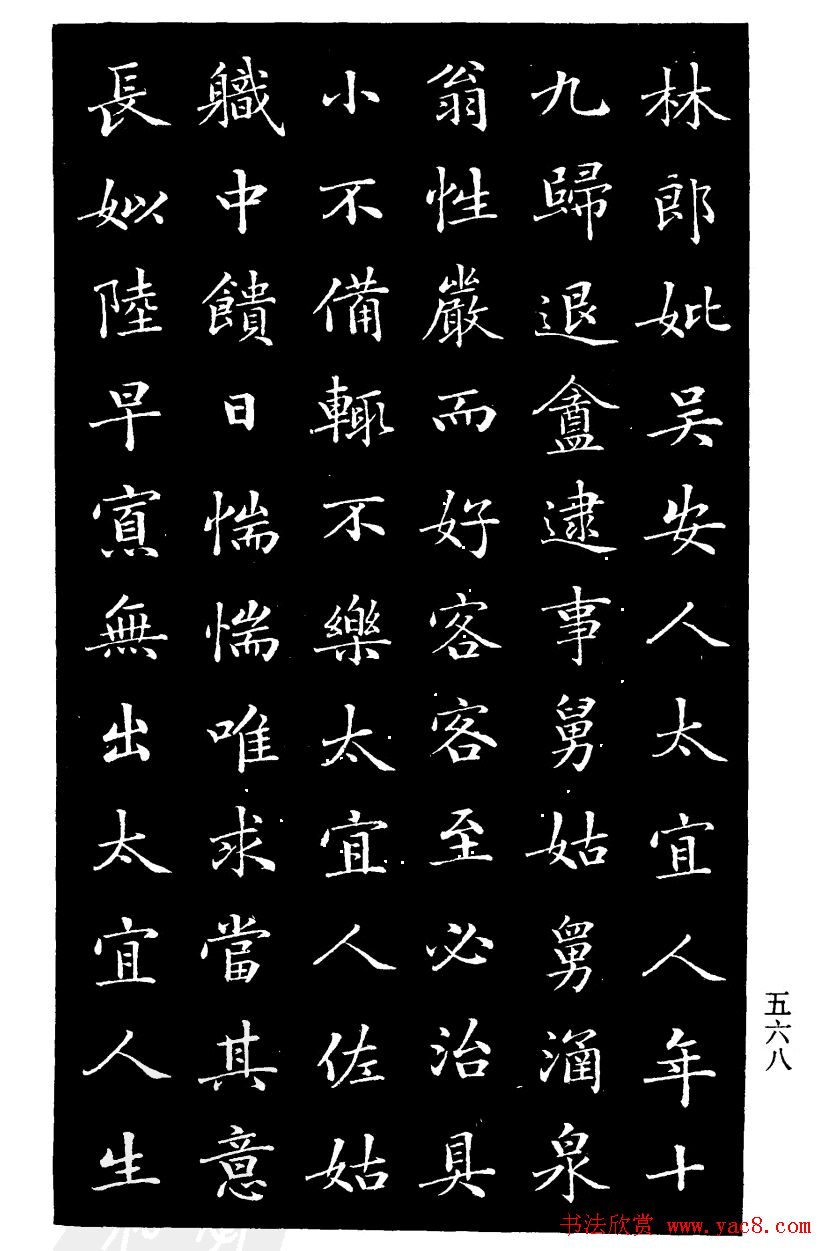 林郎妣吴安人太宜人年十
九歸退盦逮事舅姑舅涌泉
翁性嚴而好客客至必治具
小不備輒不樂太宜人佐姑
職中饋日惴惴唯求當其意
長姒陸早寡無出太宜人生
五六八
书法欣赏 www.yac8.com